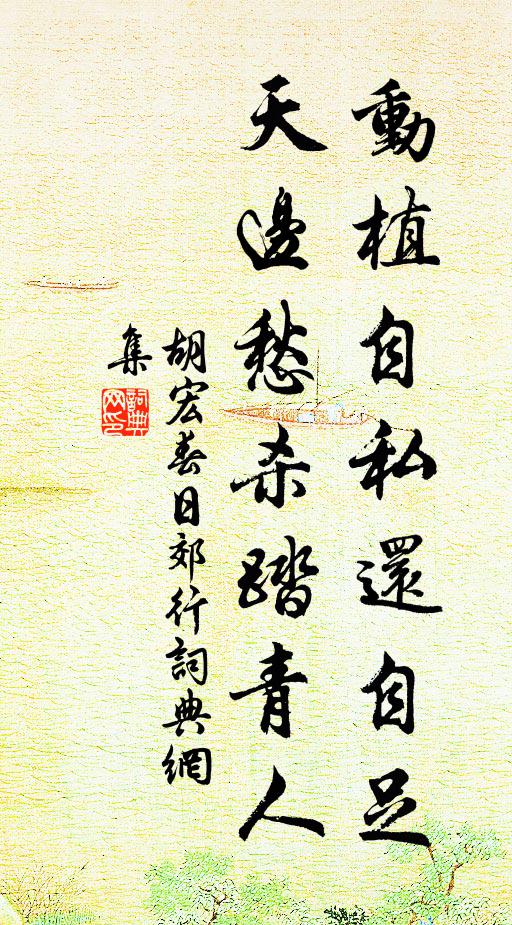 動植自私還自足
天邊愁杀踏青人
胡宏春日郊行詞典網
集
詞典
网印